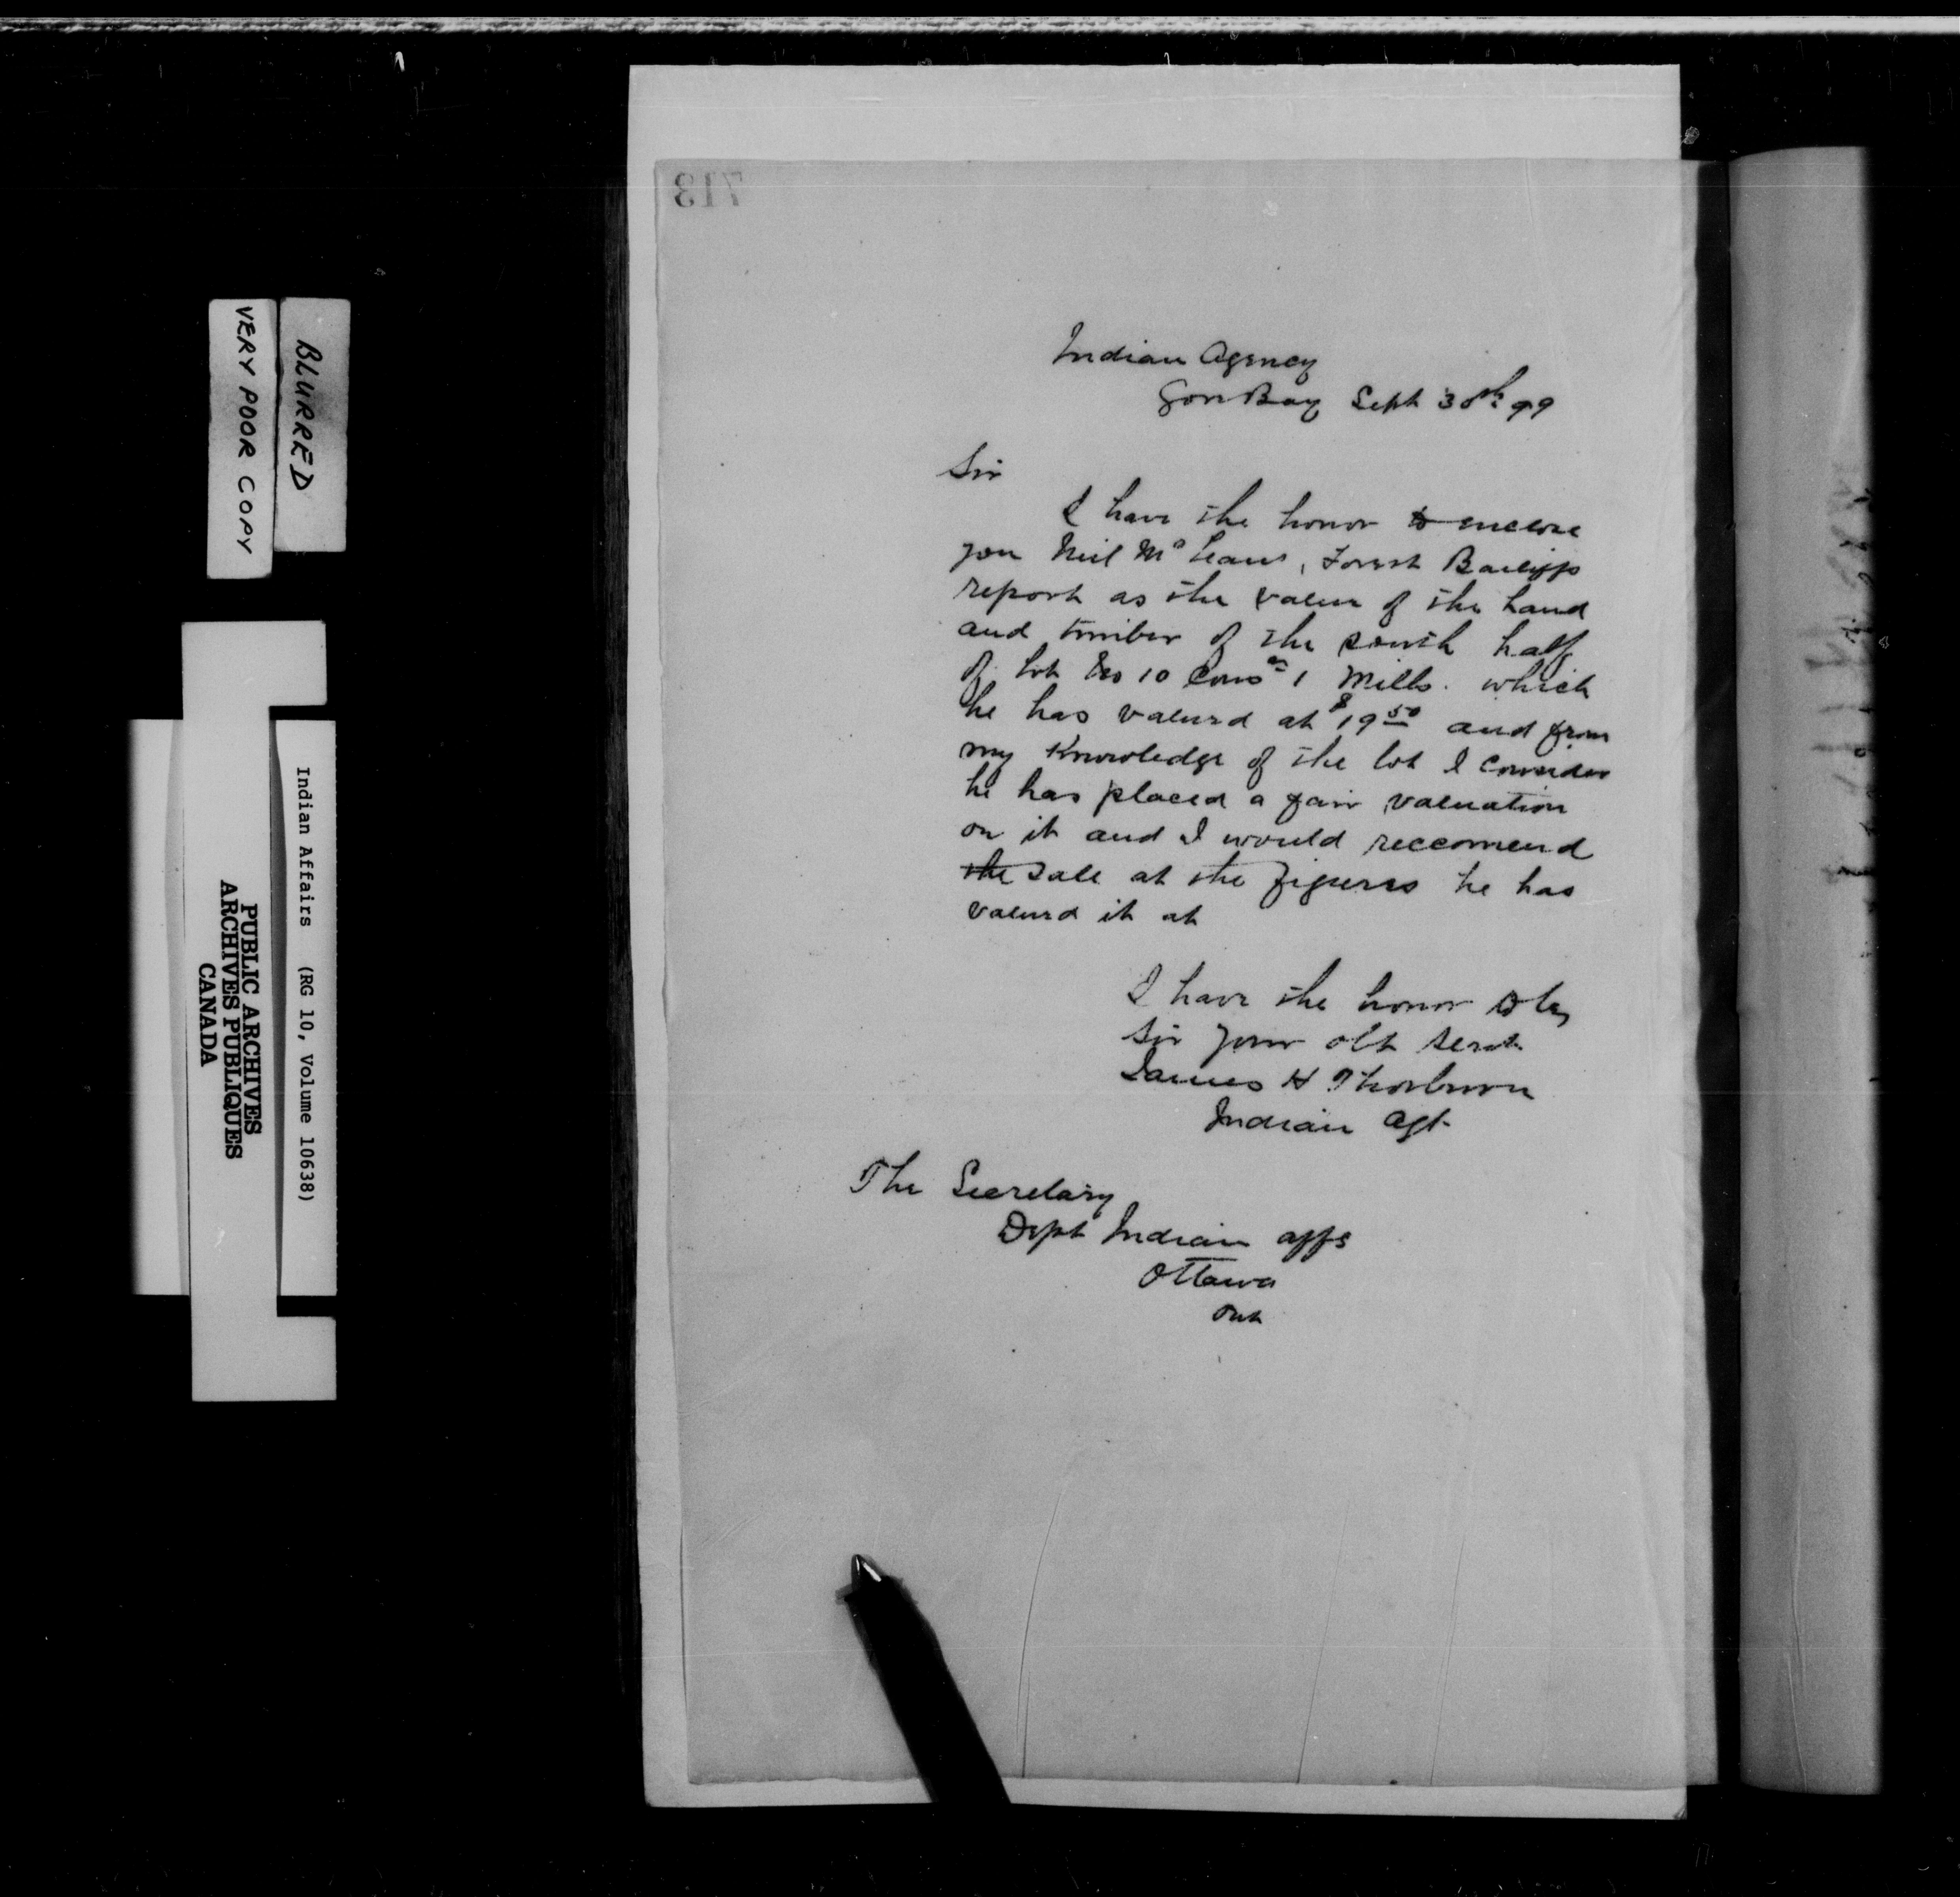 713
Indian Agency
Gore Bay Sept 30th 99
Sir
I have the honor to enclose
you Neil McLeans, Forest Bailiffs
report as the value of the Land
and timber of the south half
of Lot No 10 Conss 1 Mills. which
he has valued at $19 50 and from
my Knowledge of the lot I consider
he has placed a fair valuation
on it and I would reccomend
the sale at the figures he has
valued it at
I have the honor to be,
Sir your obt servt.
James H Thorburn
Indian Agt.
The Secretary
Dept Indian affs
Ottawa
Ont
BLURRED
VERY POOR COPY
Indian Affairs (RG 10, Volume 10638)
PUBLIC ARCHIVES
ARCHIVES PUBLIQUES
CANADA